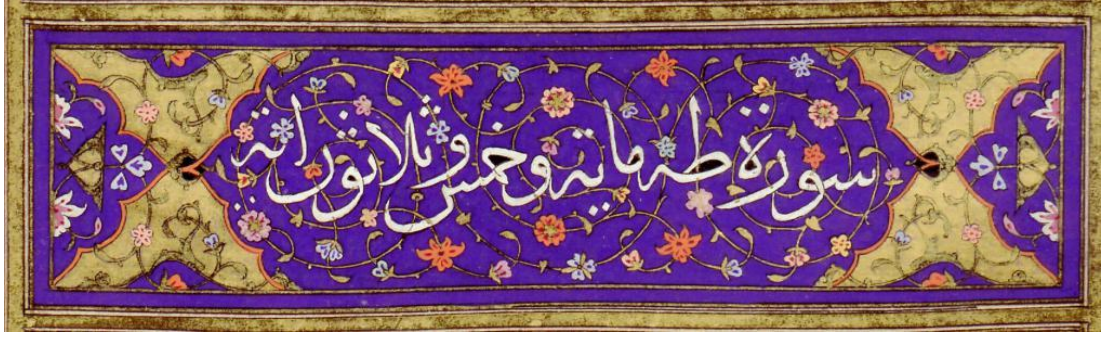 سورة طه ماية وخمس وثلاثون اية